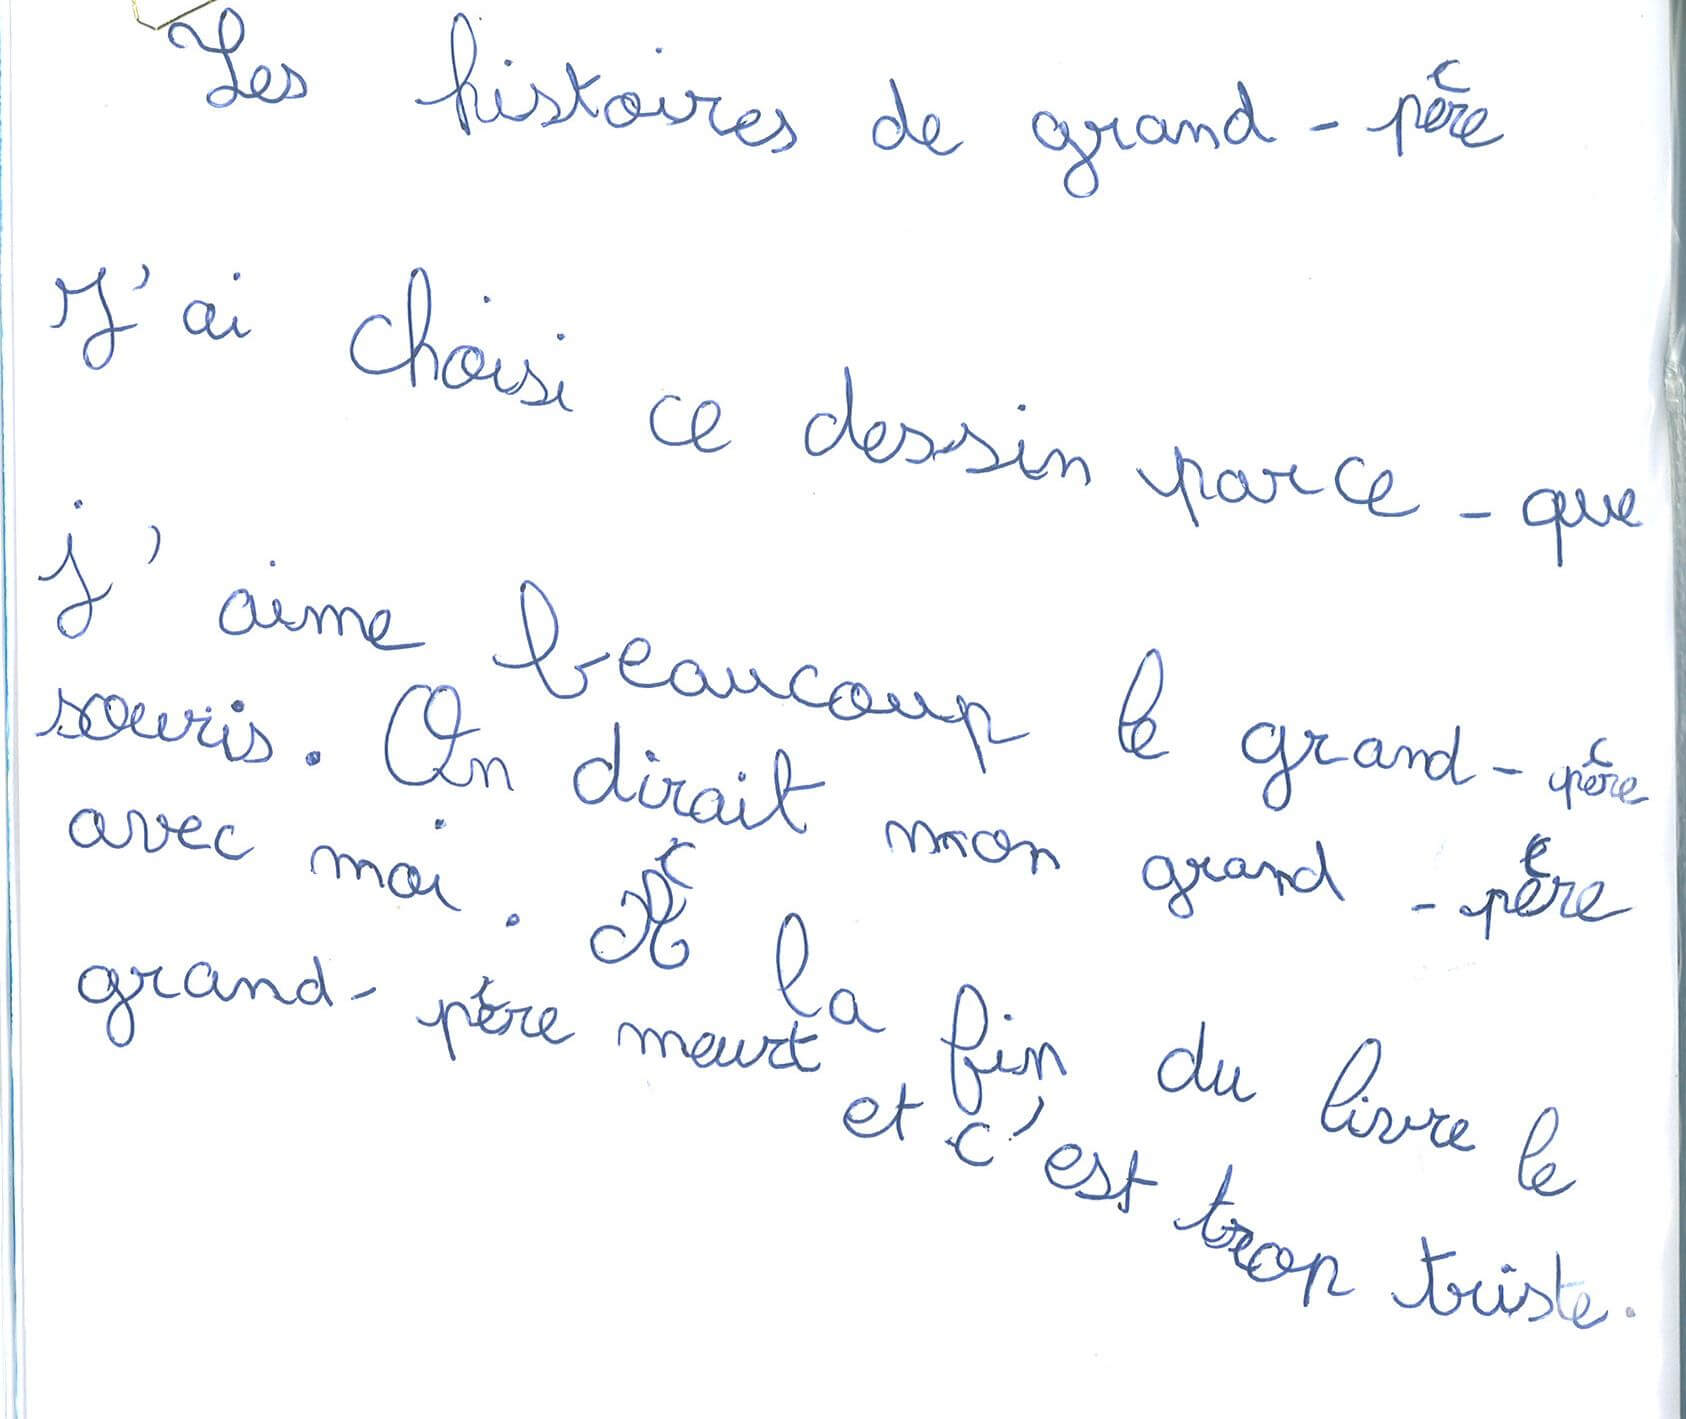 Les histoires de grand-père
J'ai choisi ce dessin parce-que
j'aime beaucoup le grand-père
souris. On dirait mon grand-père
avec moi. À la fin du livre le
grand-père meurt et c'est trop triste.